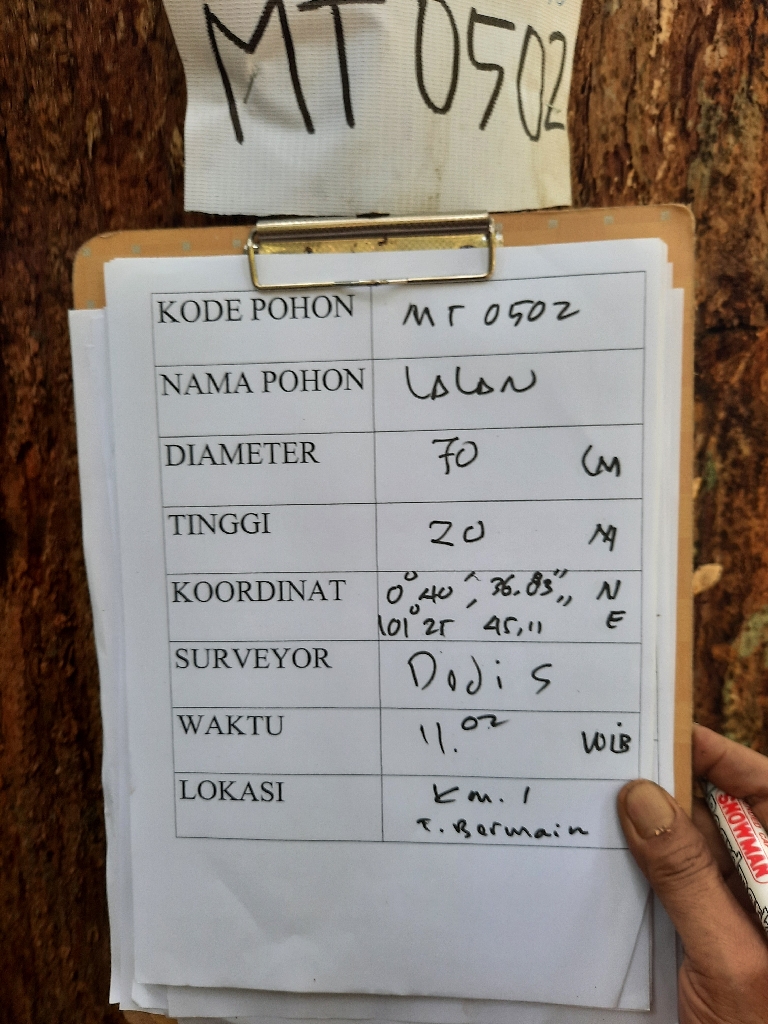 MT 0502
KODE POHON MT 0502
NAMA POHON LALAN
DIAMETER 70 CM
TINGGI 20 M
KOORDINAT 0° 40' 36.83" N
101° 25' 45,11 E
SURVEYOR Dodi S
WAKTU 11.02 WIB
LOKASI Km. 1
T. Bermain
SNOWMAN